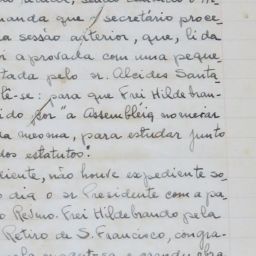 manda que o secretário proce-
a sessão anterior, que, lida
oi aprovada com uma peque
tada pelo sr. Alcides Santa
lê-se: para que Frei Hildebran-
ido por "a Assembléia nomear
da mesma, para estudar junto
dos estatutos".
diente, não houve expediente so
o dia o sr Presidente com a pa-
o Revmo. Frei Hildebrando pela
Retiro de S. Francisco, congra-